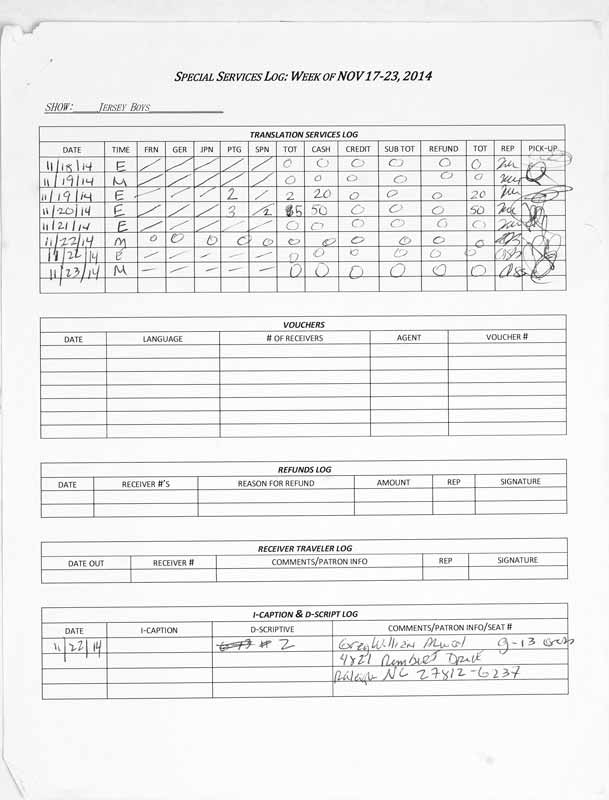 SPECIAL SERVICES LOG: WEEK OF NOV 17-23, 2014
SHOW: JERSEY BOYS
TRANSLATION SERVICES LOG
DATE TIME FRN GER JPN PTG SPN TOT CASH CREDIT SUB TOT REFUND TOT REP PICK-UP
11/18/14 E / / / / / 0 0 0 0 0 0
11/19/14 M / / / / / 0 0 0 0 0 0
11/19/14 E / / / 2 / 2 20 0 0 0 20
11/20/14 E / / / 3 2 5 50 0 0 0 50
11/21/14 E / / / / / 0 0 0 0 0 0
11/22/14 M 0 0 0 0 0 0 0 0 0 0 0
11/22/14 E - - - - - 0 0 0 0 0 0
11/23/14 M - - - - - 0 0 0 0 0 0
VOUCHERS
DATE LANGUAGE # OF RECEIVERS AGENT VOUCHER #
REFUNDS LOG
DATE RECEIVER #'S REASON FOR REFUND AMOUNT REP SIGNATURE
RECEIVER TRAVELER LOG
DATE OUT RECEIVER # COMMENTS/PATRON INFO REP SIGNATURE
I-CAPTION & D-SCRIPT LOG
DATE I-CAPTION D-SCRIPTIVE COMMENTS/PATRON INFO/SEAT #
11/22/14 # 2 Greg William 9-13
4821 Drive
Raleigh NC 27812-6237